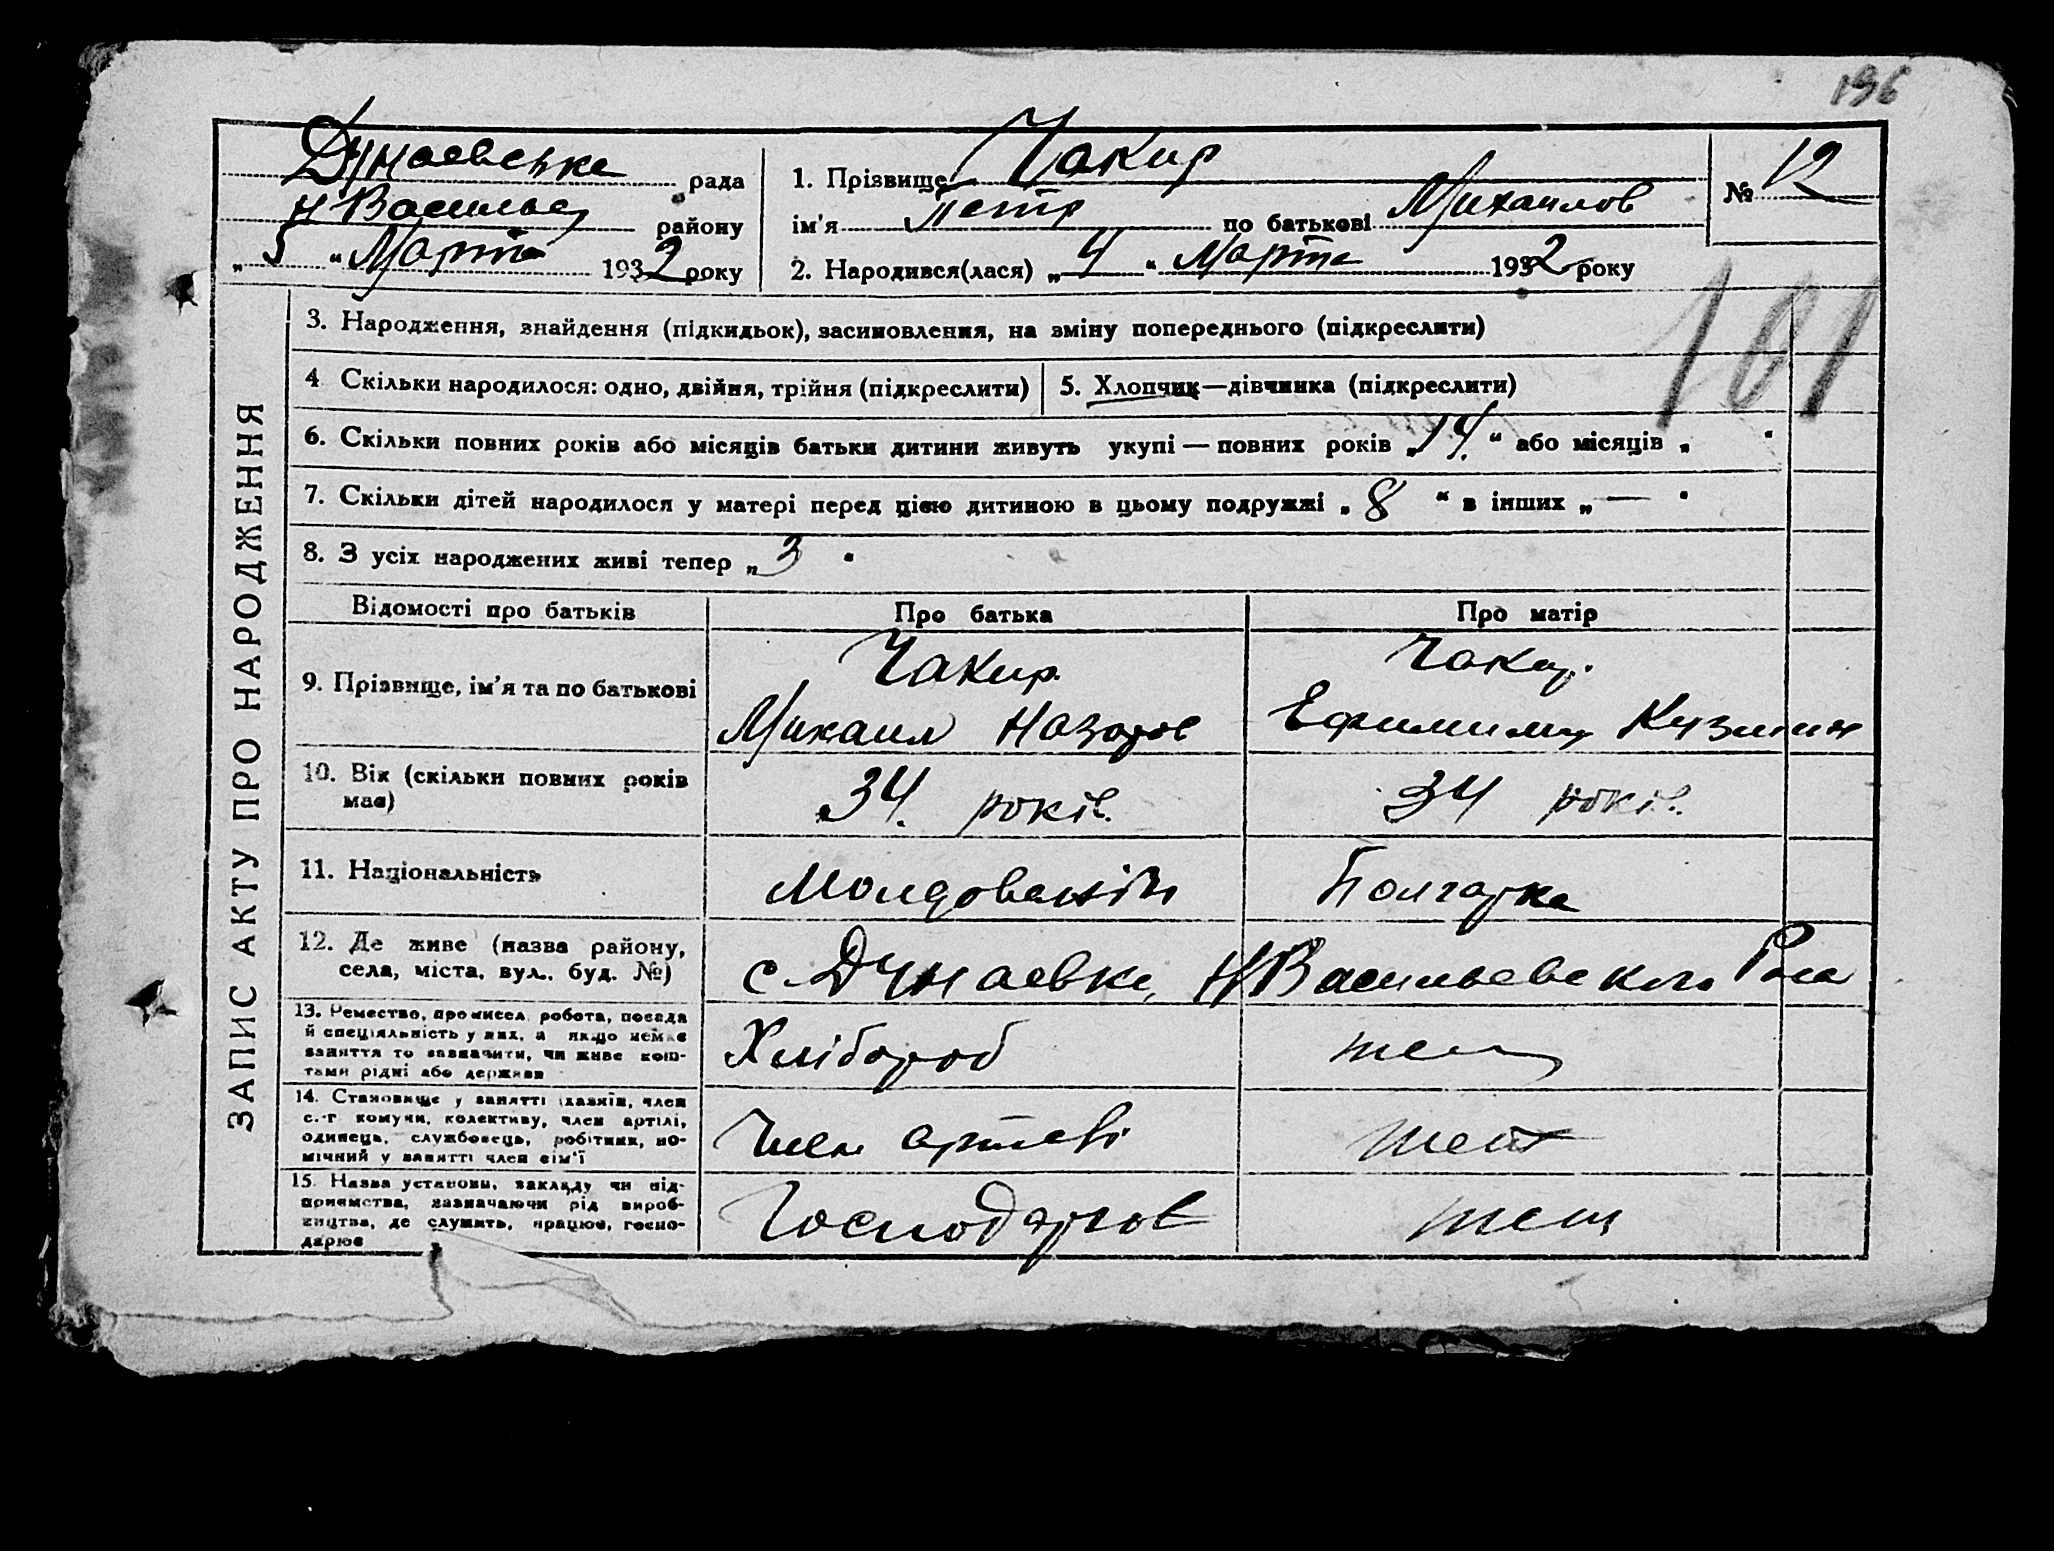 196
Дунаевська рада
Н Васильев району
„ 5 “ Марта 1932 року
1. Прізвище Чакир
ім'я Петр по батькові Михаилов
2. Народився(лася) „ 4 “ Марта 1932 року
№ 12
101
ЗАПИС АКТУ ПРО НАРОДЖЕННЯ
3. Народження, знайдення (підкидьок), засиновлення, на зміну попереднього (підкреслити)
4 Скільки народилося: одно, двійня, трійня (підкреслити)
5. Хлопчик—дівчинка (підкреслити)
6. Скільки повних років або місяців батьки дитини живуть укупі — повних років „ 14. “ або місяців „ “
7. Скільки дітей народилося у матері перед цією дитиною в цьому подружжі „ 8 “ в інших „ — “
8. З усіх народжених живі тепер „ 3 “
Відомості про батьків
Про батька
Про матір
9. Прізвище, ім'я та по батькові
Чакир
Михаил Назаров
Чакир.
Кузмин
10. Вік (скільки повних років
має)
34. років.
34 років.
11. Національність
Молдованін
Болгарка
12. Де живе (назва району,
села, міста, вул., буд. №)
с. Дунаевка, Н Васильевского
13. Ремество, промисел, робота, посада
й спеціяльність у них, а якщо немає
заняття то зазначити, чи живе кош-
тами рідні або держави
Хлібороб
14. Становище у занятті (хазяїн, член
с.-г комуни, колективу, член артілі,
одинець, службовець, робітник, по-
мічний у занятті член сім'ї
Член артелі
15. Назва установи, закладу чи під-
приємства, зазначаючи рід вироб-
ництва, де служить, працює, госпо-
дарює